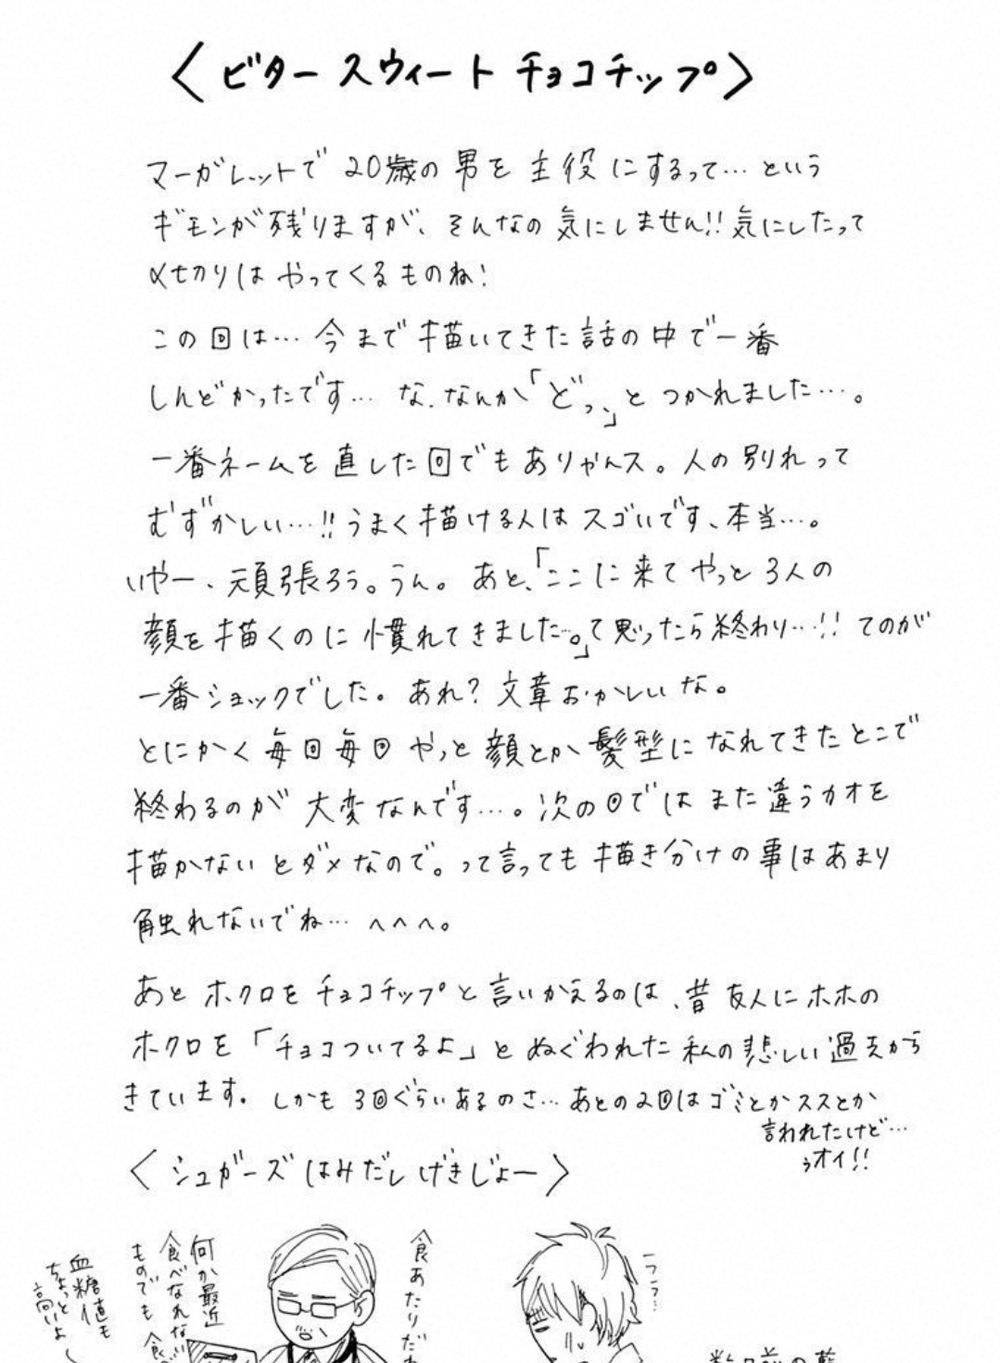 〈ビタースウィートチョコチップ〉
マーガレットで20歳の男を主役にするって…という
ギモンが残りますが、そんなの気にしません!!気にしたって
〆切りはやってくるものね!
この回は…今まで描いてきた話の中で一番
しんどかったです…な、なんか「どっ」とつかれました…。
一番ネームを直した回でもありやんス。人の別れって
むずかしい…!!うまく描ける人はスゴいです、本当…。
いやー、頑張ろう。うん。あと、「ここに来てやっと3人の
顔を描くのに慣れてきました…。」て思ったら終わり…!!てのが
一番ショックでした。あれ?文章おかしいな。
とにかく毎回毎回やっと顔とか髪型になれてきたとこで
終わるのが大変なんです…。次の回ではまた違うカオを
描かないとダメなので。って言っても描き分けの事はあまり
触れないでね…へへへ。
あとホクロをチョコチップと言いかえるのは、昔友人にホホの
ホクロを「チョコついてるよ」とぬぐわれた私の悲しい過去から
きています。しかも3回ぐらいあるのさ…あとの2回はゴミとかススとか
言われたけど…
ぅオイ!!
〈シュガーズはみだしげきじょー〉
血糖値も
ちょっと
高いよ
何か最近
食べなれない
ものでも食
食あたりだ